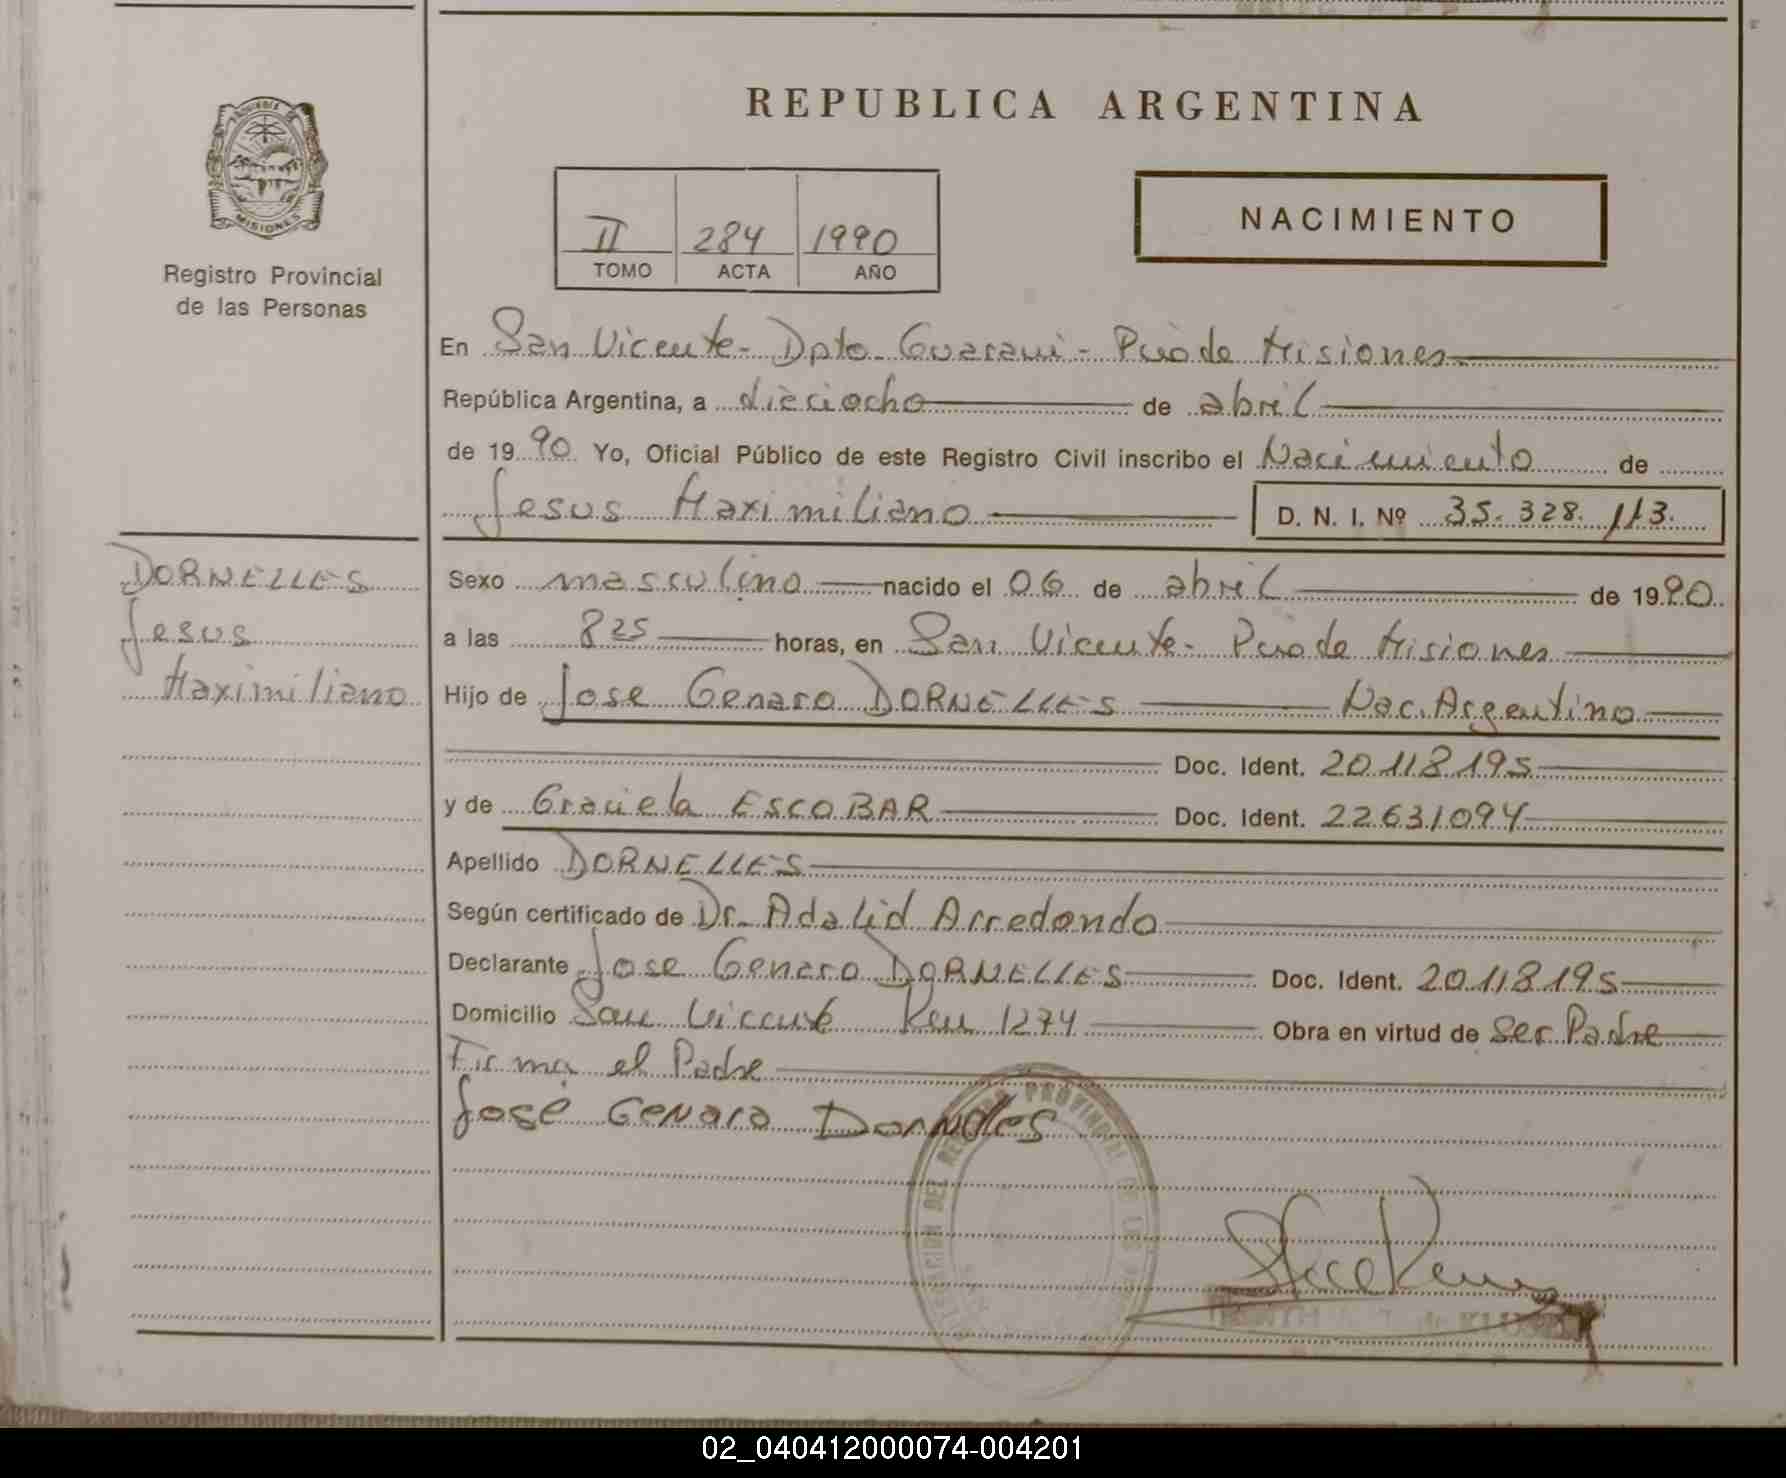 REPUBLICA ARGENTINA
MISIONES
Registro Provincial
de las Personas
II 284 1990
TOMO ACTA AÑO
NACIMIENTO
En San Vicente- Dpto- Guarani - Pciade Misiones
República Argentina, a dieciocho de abril
de 1990 Yo, Oficial Público de este Registro Civil inscribo el Nacimiento de
Jesus Maximiliano D. N. I. Nº 35.328.113.
DORNELLES
Jesus
Maximiliano
Sexo masculino nacido el 06 de abril de 1990
a las 825 horas, en San Vicente- Pciade Misiones
Hijo de Jose Genaro DORNELLES Nac. Argentino
Doc. Ident. 20118195
y de Graciela ESCOBAR Doc. Ident. 22631094
Apellido DORNELLES
Según certificado de Dr. Adalid Arredondo
Declarante Jose Genaro DORNELLES Doc. Ident. 20118195
Domicilio San Vicente Km 1274 Obra en virtud de Ser Padre
Firma el Padre
José GENARO DORNElles
DEL PROVINCIAL DE LAS
02_040412000074-004201